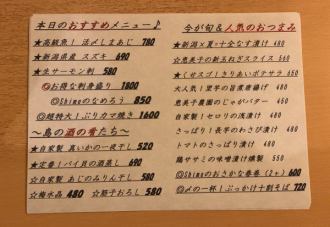 本日のおすすめメニュー♪
★高級魚！活〆しまあじ 780
★新潟県産 スズキ 690
★生サーモン刺 580
◎お得な刺身盛り 1800
◎Shimeのなめろう 850
◎超特大！ぶりカマ焼き 1600
～島の酒の肴たち～
★自家製 真いかの一夜干し 520
★定番！バイ貝の酒蒸し 690
☆自家製 あじのみりん干し 580
☆梅水晶 480 ☆筋子おろし 580
今が旬＆人気のおつまみ
★新潟×夏=十全なす漬け 480
☆恵美子の新玉ねぎスライス 580
★くせスゴ！きりあいポテサラ 650
大人気！里芋の旨煮唐揚げ 680
恵美子農園のじゃがバター 480
自家製！セロリの浅漬け 480
さっぱり！長芋のわさび漬け 480
トマトのさっぱり漬け 480
鶏ササミの味噌漬け燻製 550
◎Shimeのおさかな春巻（2ヶ）600
◎〆の一杯！ぶっかけ十割そば 720